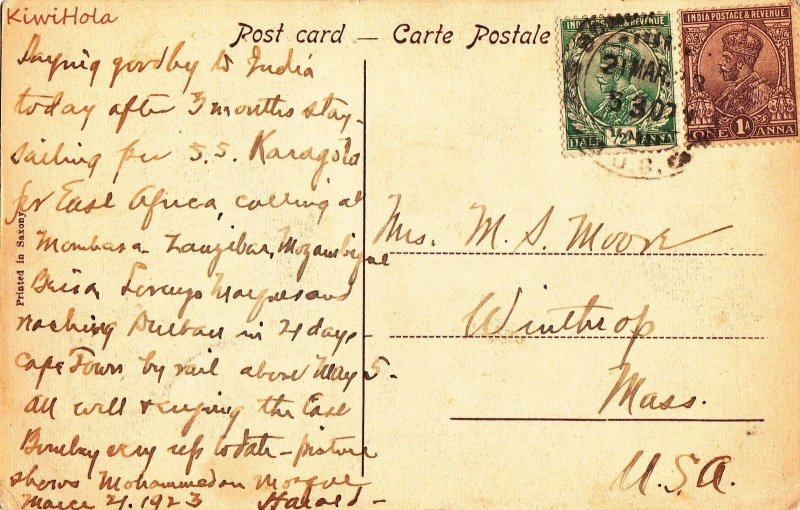 KiwiHola
Post card — Carte Postale
INDIA POSTAGE & REVENUE
HALF ½A ANNA
INDIA POSTAGE & REVENUE
ONE 1A ANNA
21 MAR.
Saying goodby to India
today after 3 months stay-
sailing per S.S. Karagola
for East Africa, calling at
Mombasa Zanzibar, Mozambique
Beira Lorenzo Marques and
reaching Durban in 21 days-
Cape Town by rail about May 5-
All well & enjoying the East
Bombay very up to date - picture
shows Mohammedan Mosque
March 21. 1923 Harold-
Printed in Saxony
Mrs. M. S. Moore
Winthrop
Mass.
U.S.A.